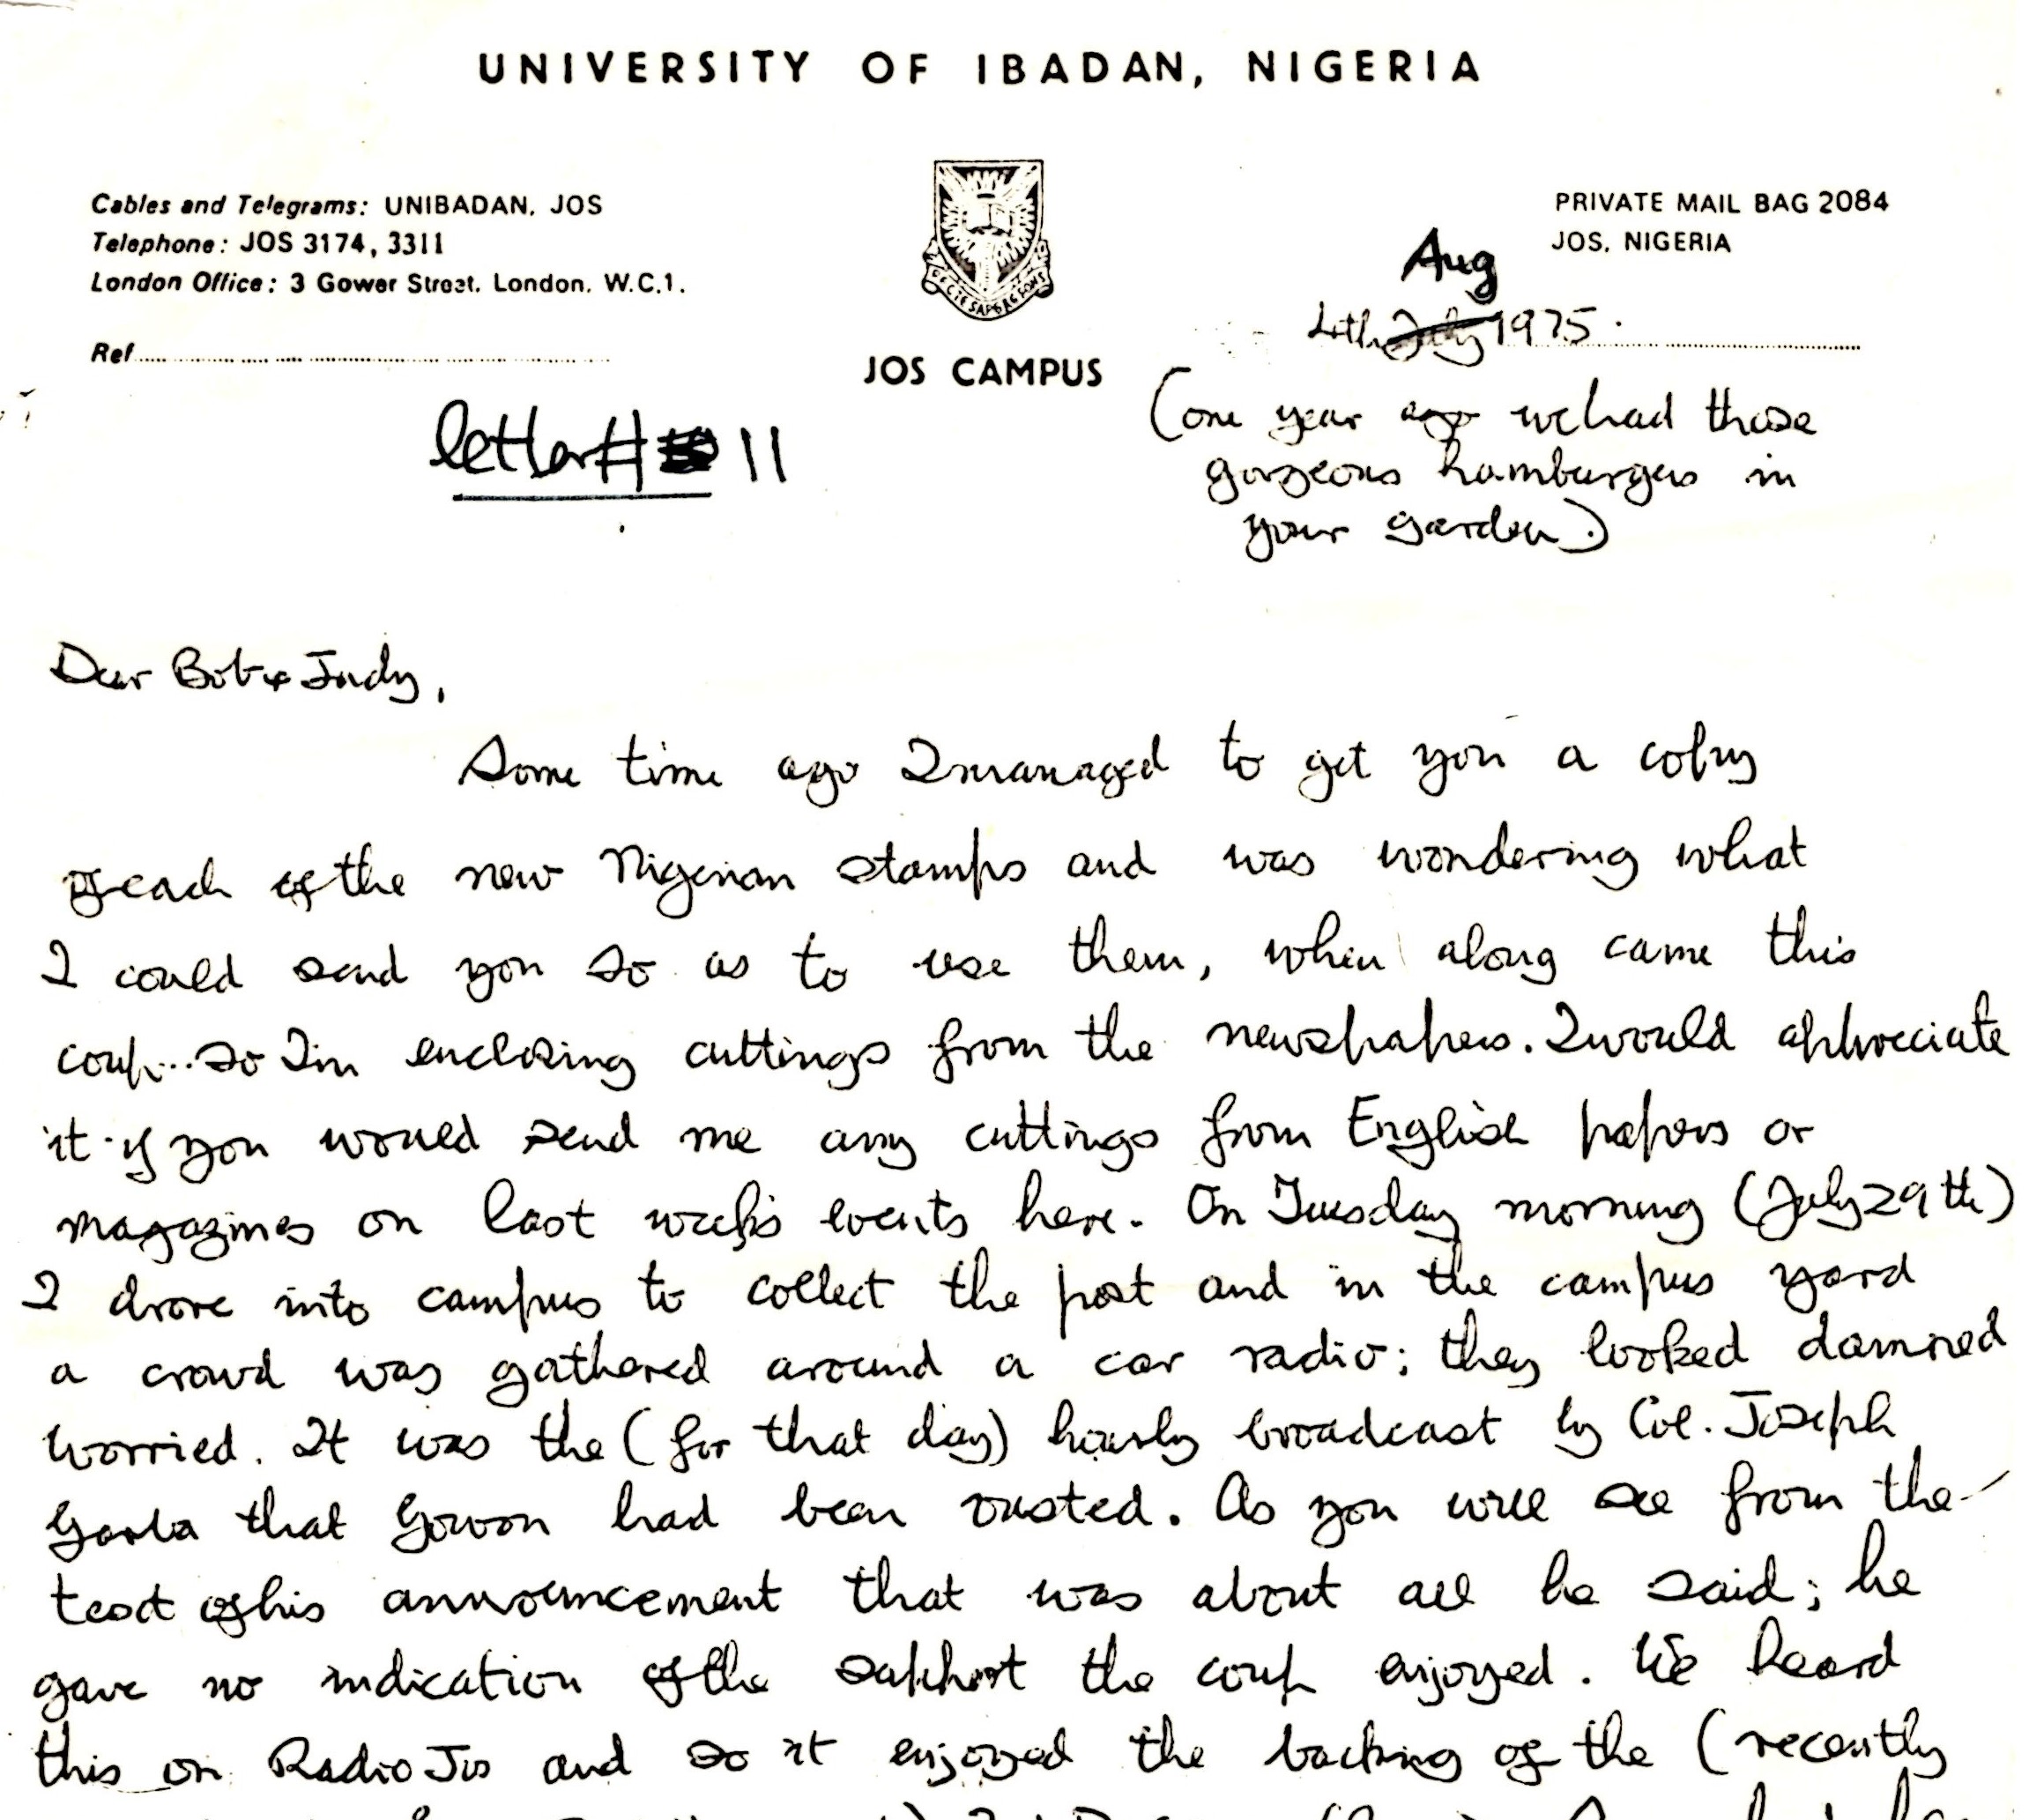 UNIVERSITY OF IBADAN, NIGERIA
Cables and Telegrams: UNIBADAN, JOS
Telephone: JOS 3174, 3311
London Office: 3 Gower Street, London, W.C.1.
Ref
JOS CAMPUS
PRIVATE MAIL BAG 2084
JOS, NIGERIA
Aug
4th July 1975.
(one year ago we had those
gorgeous hamburgers in
your garden.)
letter # 11
Dear Bob & Judy,
Some time ago I managed to get you a copy
of each of the new Nigerian stamps and was wondering what
I could send you so as to use them, when along came this
coup... so I'm enclosing cuttings from the newspapers. I would appreciate
it if you would send me any cuttings from English papers or
magazines on last week's events here. On Tuesday morning (July 29th)
I drove into campus to collect the post and in the campus yard
a crowd was gathered around a car radio; they looked damned
worried. It was the (for that day) hourly broadcast by Col. Joseph
Garba that Gowon had been ousted. As you will see from the
text of his announcement that was about all he said; he
gave no indication of the support the coup enjoyed. We heard
this on Radio Jos and so it enjoyed the backing of the (recently